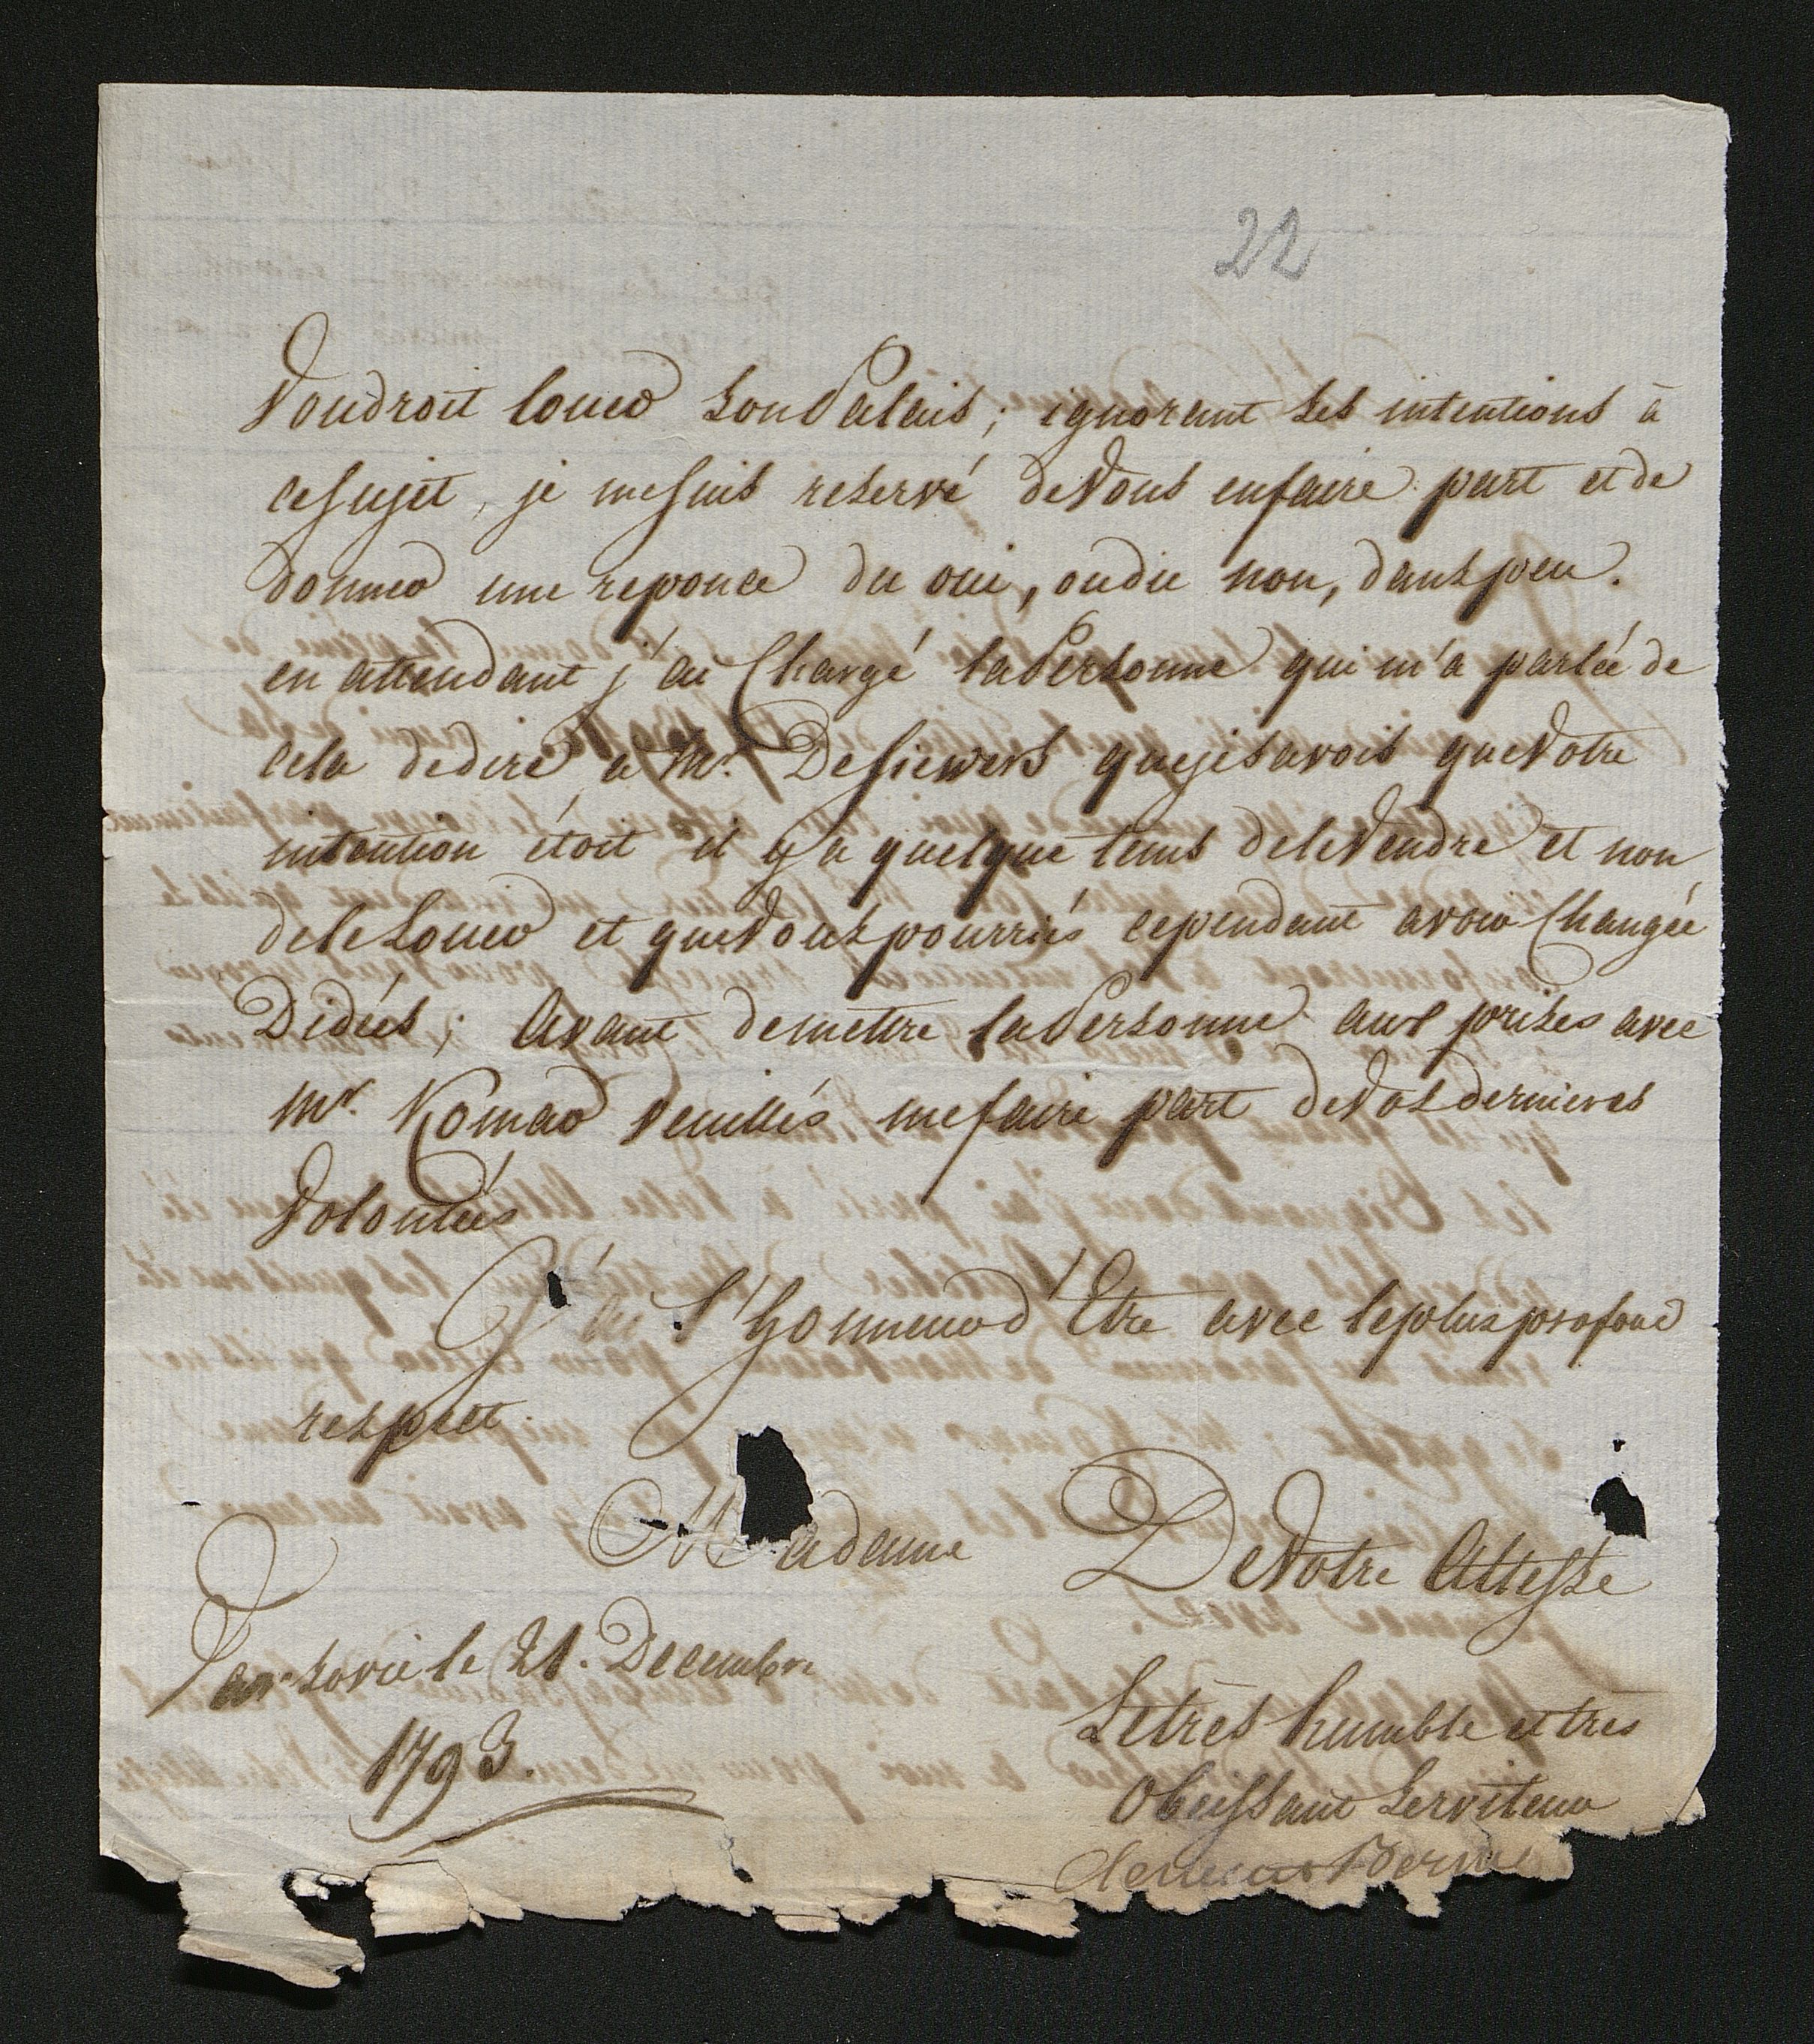 22
Voudroit louer son Palais; ignorant ses intentions à
ce sujet, je me suis reservé de Vous en faire part et de
donner une reponce du oui, ou du non, dans peu.
en attendant j'ai Chargé la Personne qui m'a parlée de
cela de dire a Mr. De Siewers que je savois que Votre
intention étoit il y a quelque tems de le Vendre et non
de le Louer et que Vous pourriés cependant avoir Changée
D'idées; Avant de mettre la Personne aux prises avec
Mr. Komar Veuillés me faire part de Vos dernieres
Volontées
J'ai l'honneur d'Etre avec le plus profond
respect.
Madame
De Votre Altesse
Varsovie le 21. Decembre
1793.
Le très humble et très
Obeissant Serviteur
Clement Bern